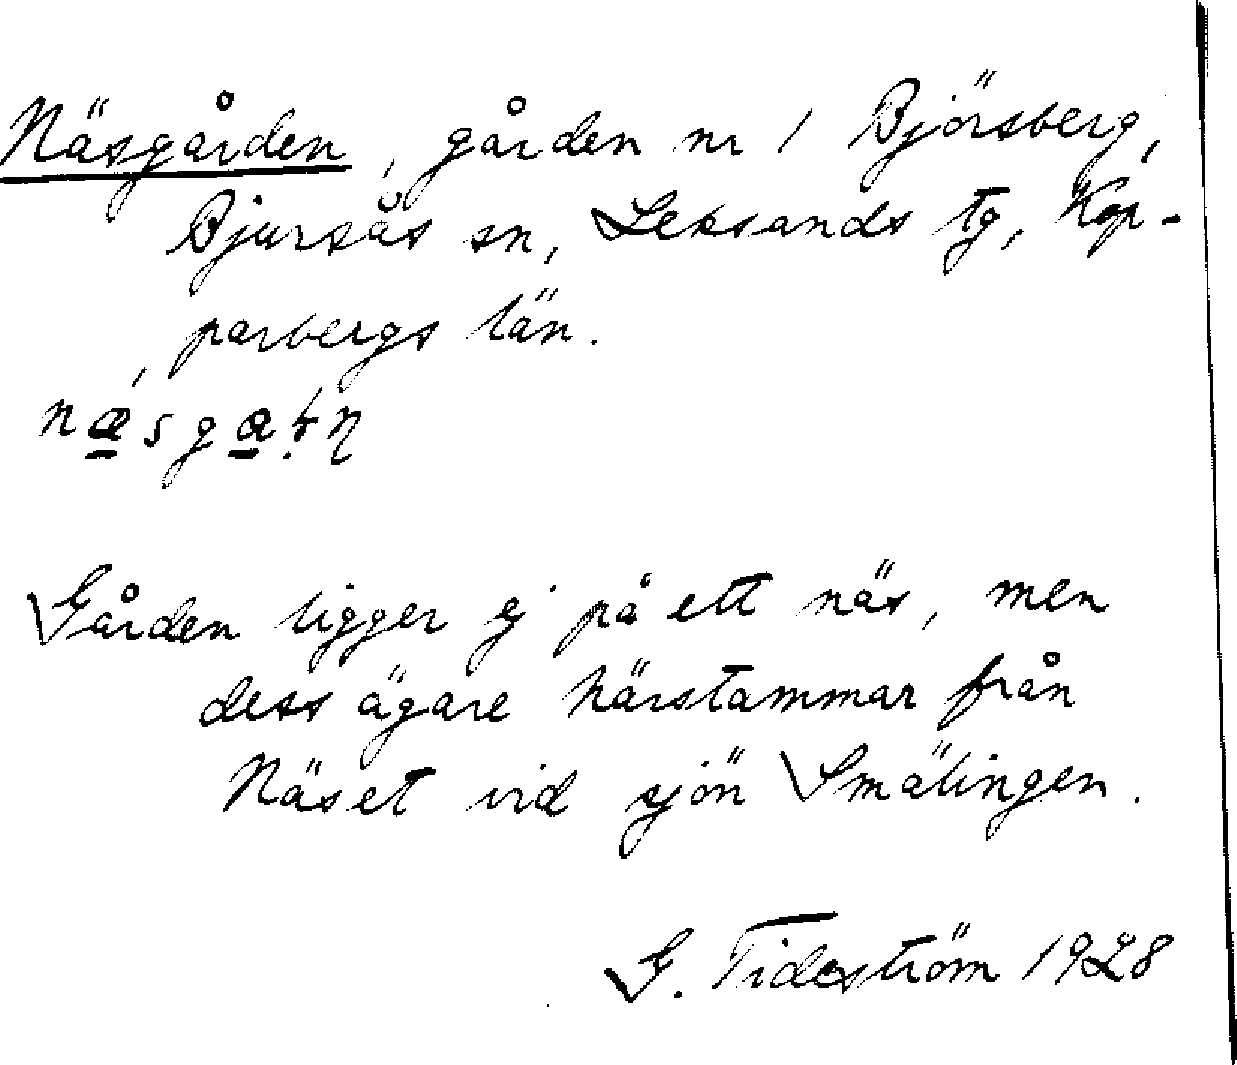 Näsgården, gården nr 1 Björsberg,
Bjursås sn, Leksands tg, Kop-
parbergs län.
Gården ligger ej på ett näs, men
dess ägare härstammar från
Näset vid sjön Smälingen.
G. Tideström 1928